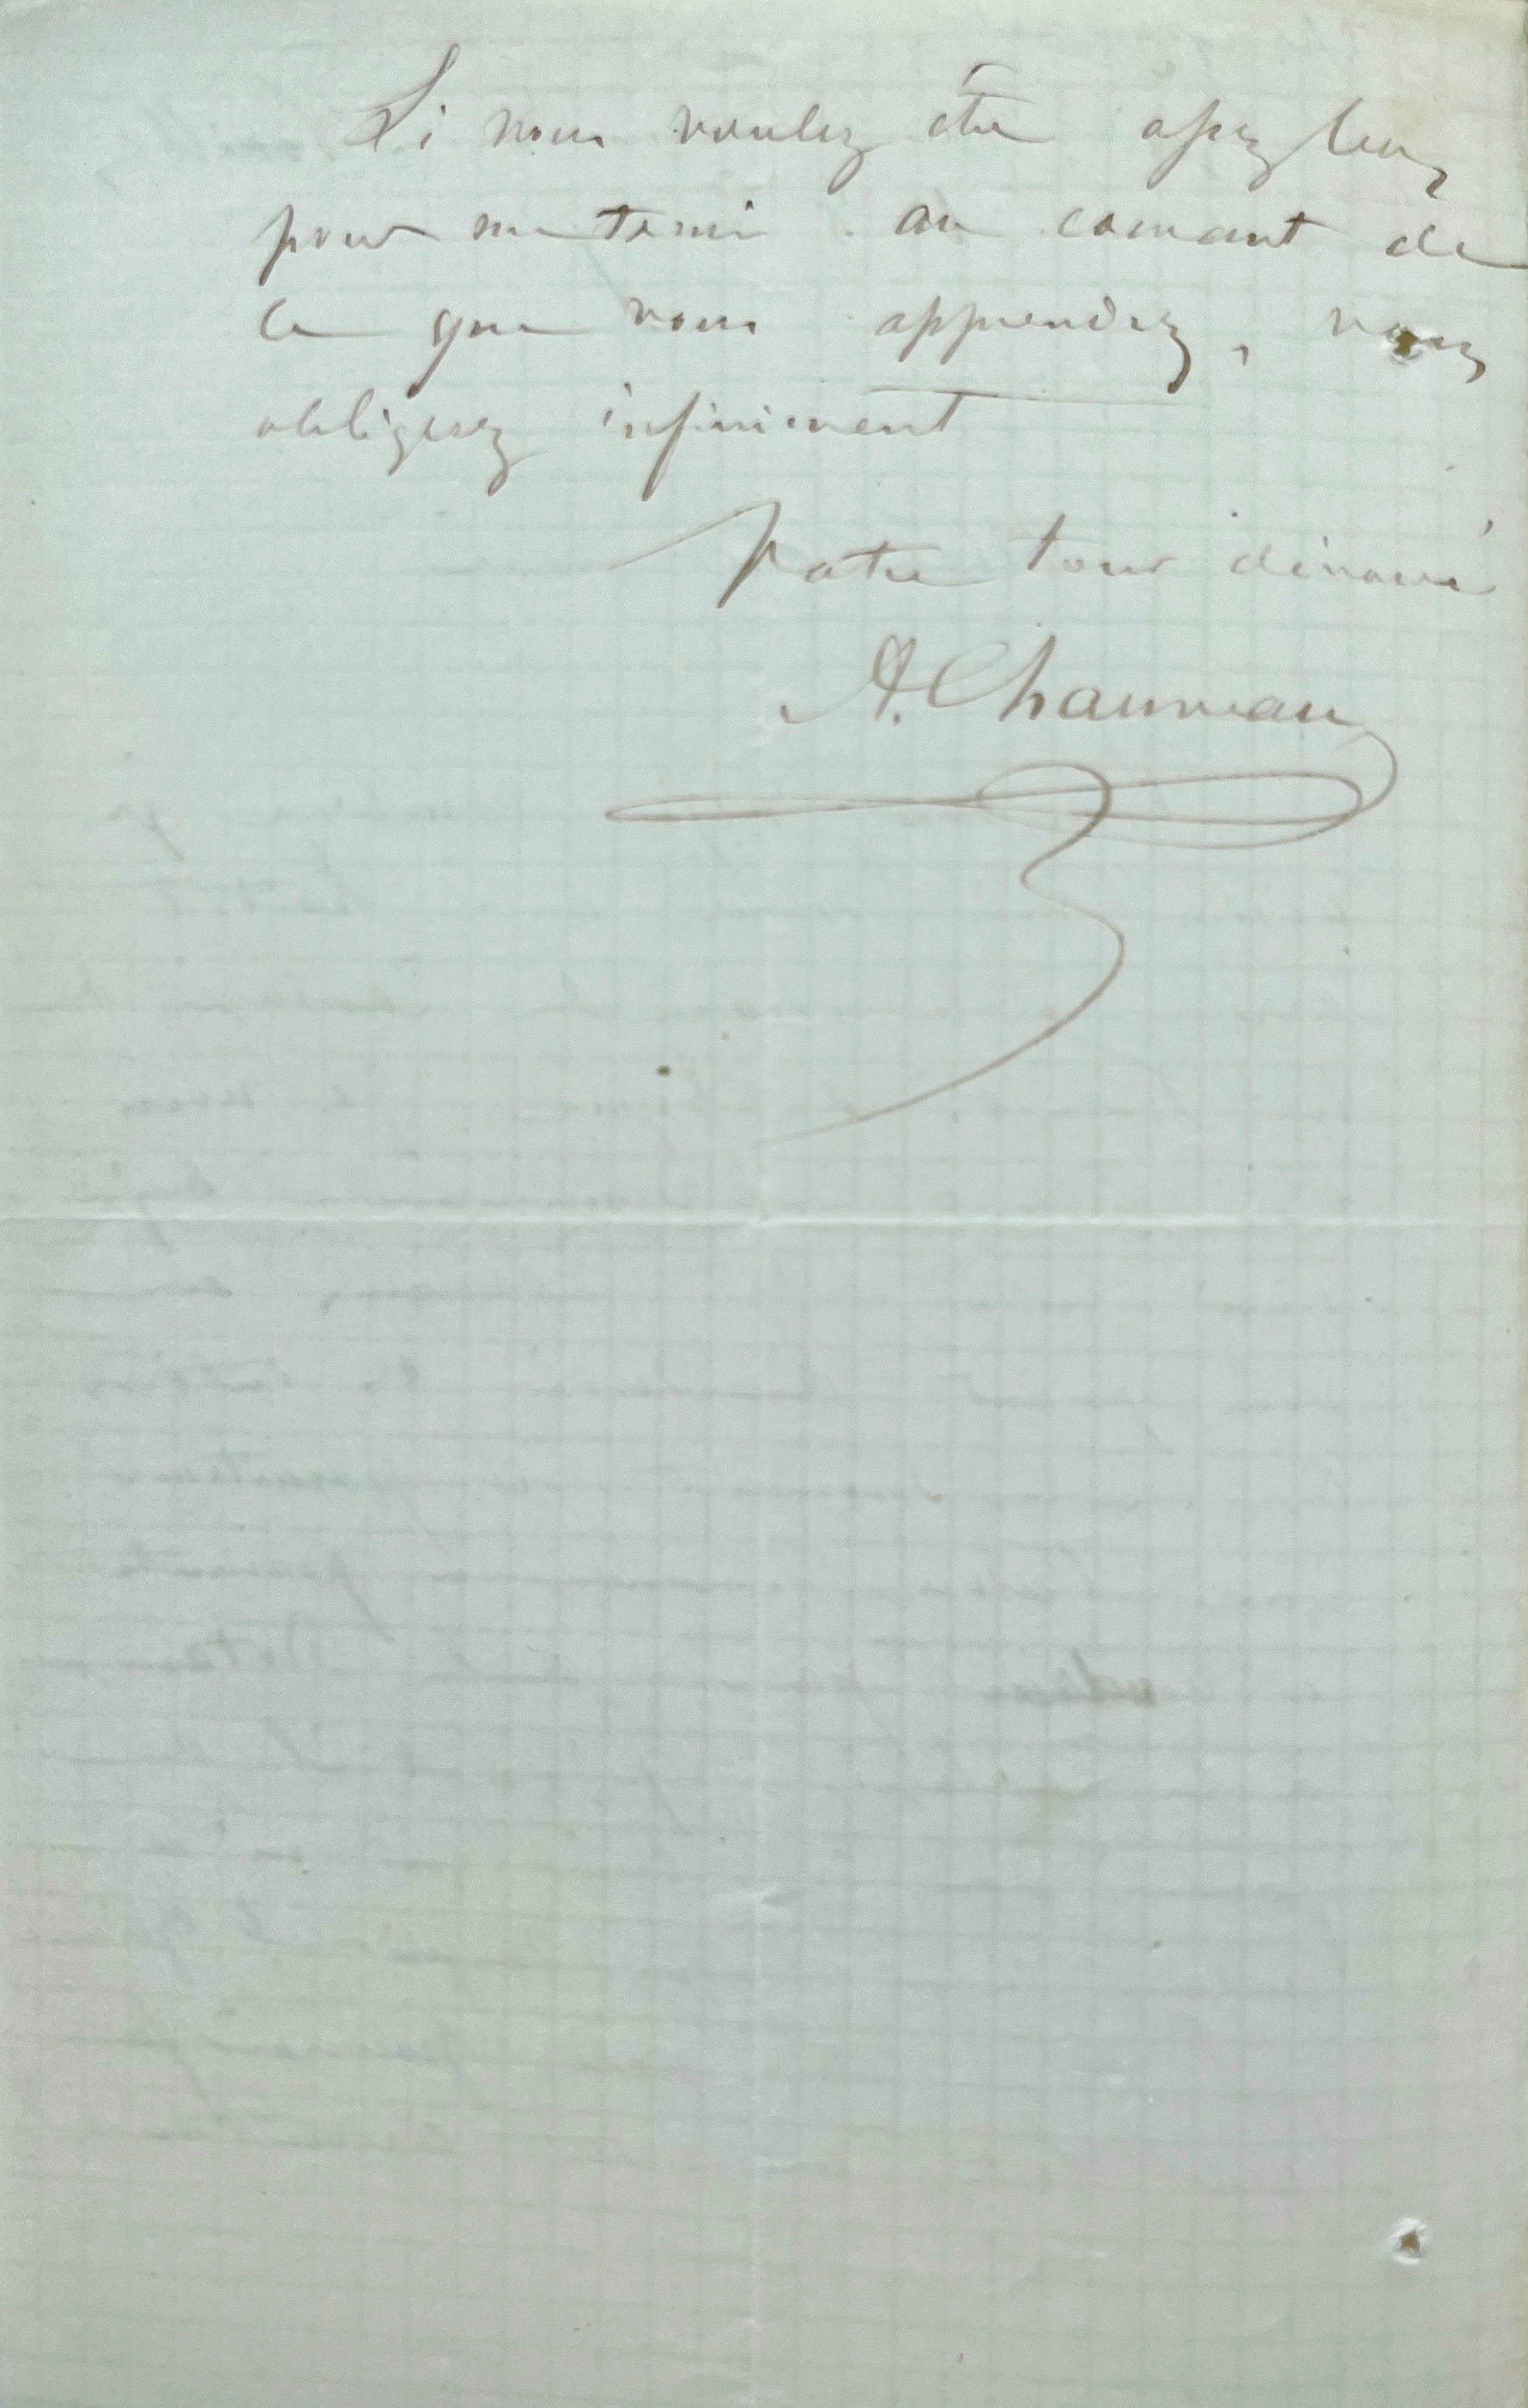 Si vous voulez être assez bon,
pour me tenir au courant de
ce que vous apprendrez, vous
obligerez infiniment
Votre tout dévoué
A. Chauveau